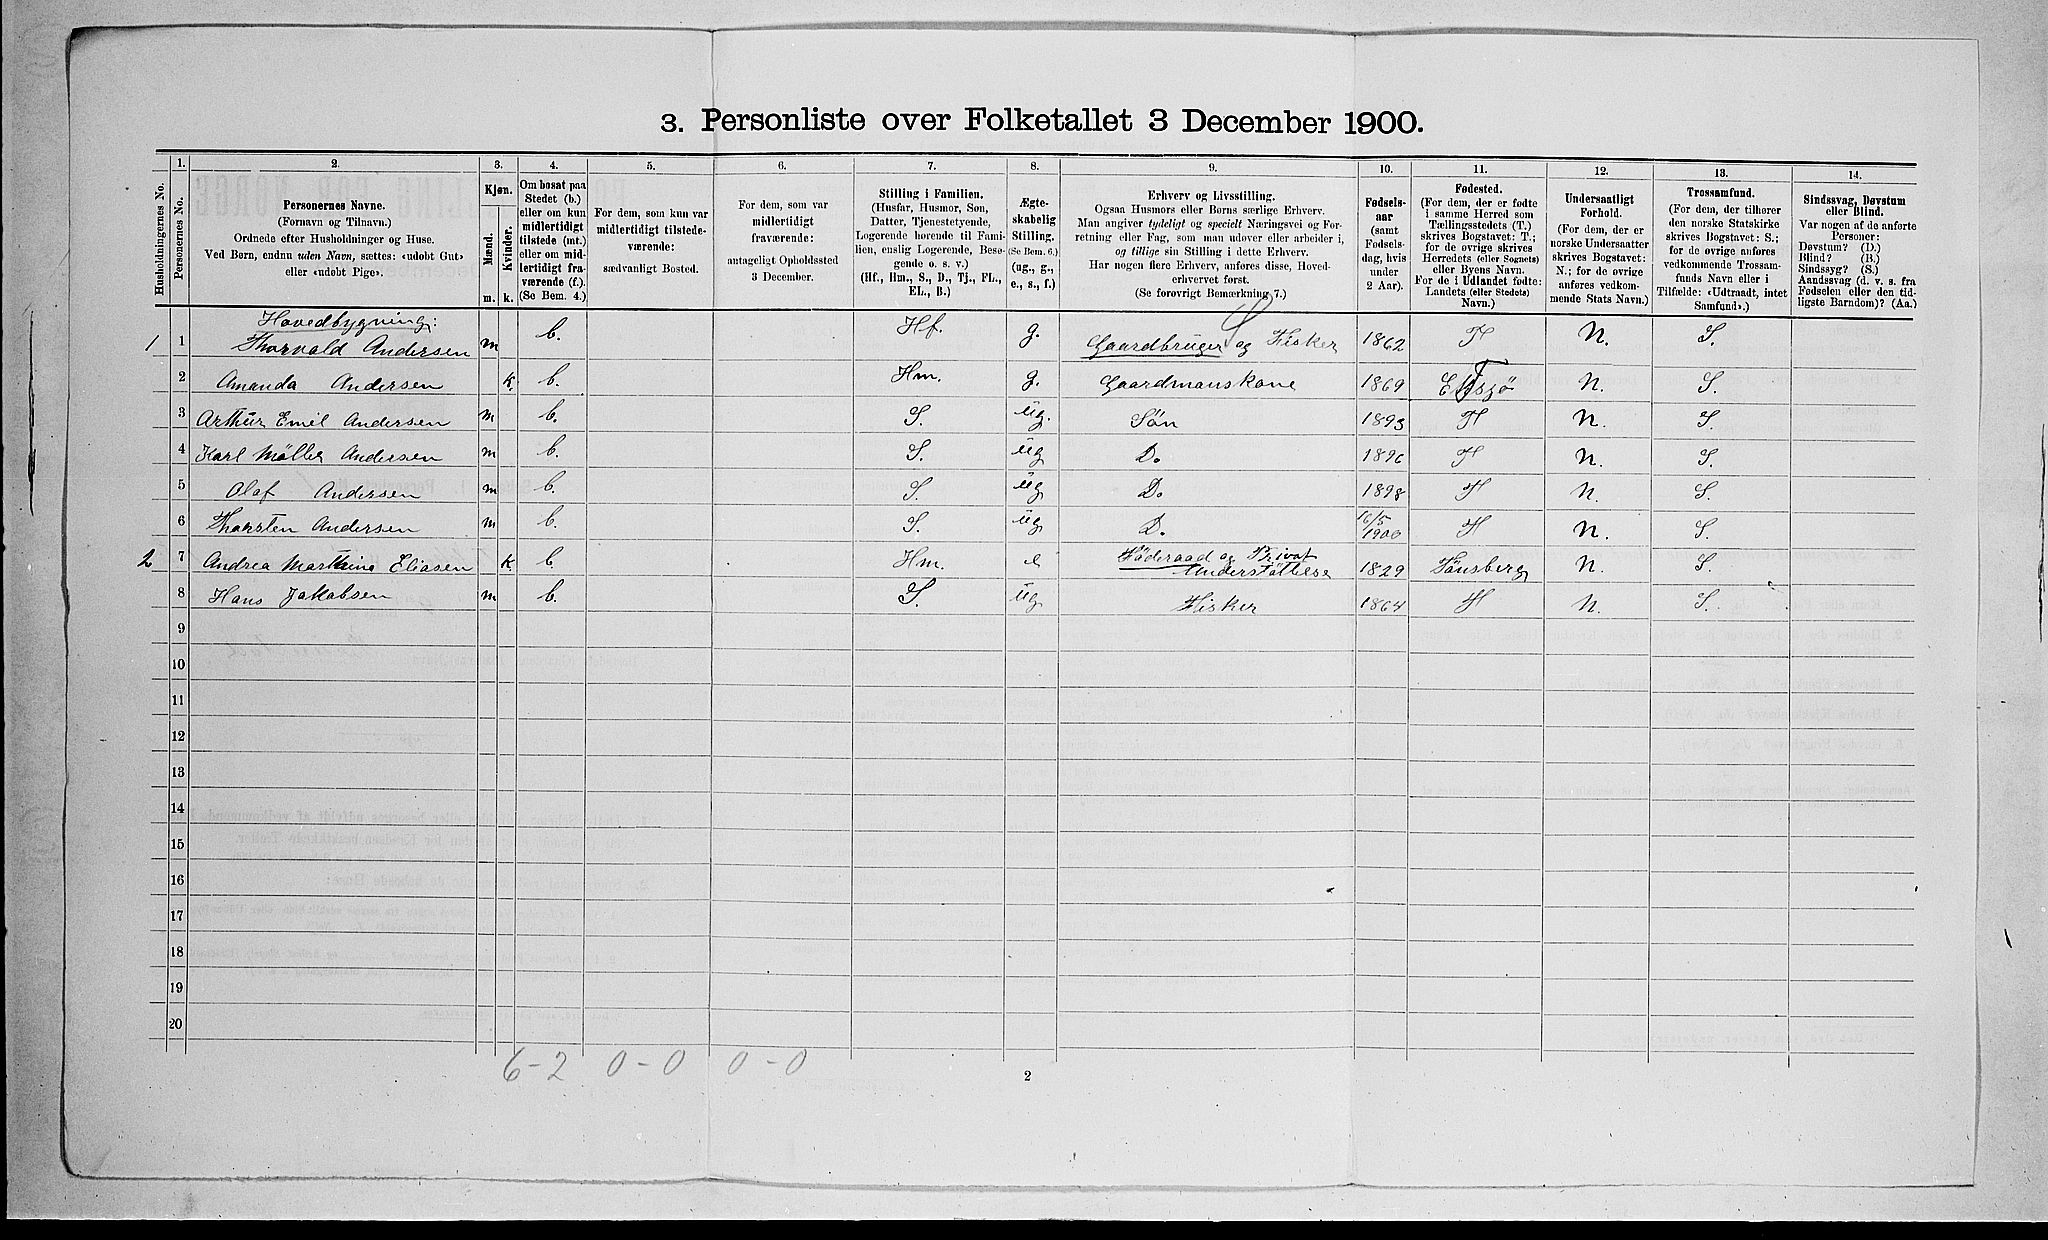 3. Personliste over Folketallet 3 December 1900.
1. 2. 3. 4. 5. 6. 7. 8. 9. 10. 11. 12. 13. 14.
Husholdningernes No.
Personernes No.
Personernes Navne.
(Fornavn og Tilnavn.)
Ordnede efter Husholdninger og Huse.
Ved Børn, endnu uden Navn, sættes: «udøbt Gut»
eller «udøbt Pige».
Kjøn.
Mænd.
Kvinder.
m. k.
Om bosat paa
Stedet (b.)
eller om kun
midlertidigt
tilstede (mt.)
eller om mid-
lertidigt fra-
værende (f.)
(Se Bem. 4.)
For dem, som kun var
midlertidigt tilstede-
værende:
sædvanligt Bosted.
For dem, som var
midlertidigt
fraværende:
antageligt Opholdssted
3 December.
Stilling i Familien.
(Husfar, Husmor, Søn,
Datter, Tjenestetyende,
Logerende hørende til Fami-
lien, enslig Logerende, Besø-
gende o. s. v.)
(Hf., Hm., S., D., Tj., FL.,
EL., B.)
Ægte-
skabelig
Stilling.
(Se Bem. 6.)
(ug., g.,
e., s., f.)
Erhverv og Livsstilling.
Ogsaa Husmors eller Børns særlige Erhverv.
Man angiver tydeligt og specielt Næringsvei og For-
retning eller Fag, som man udover eller arbeider i,
og tillige sin Stilling i dette Erhverv.
Har nogen flere Erhverv, anføres disse, Hoved-
erhvervet først.
(Se forøvrigt Bemærkning 7.)
Fødsels-
aar
(samt
Fødsels-
dag, hvis
under
2 Aar).
Fødested.
(For dem, der er fødte
i samme Herred som
Tællingsstedets (T.)
skrives Bogstavet: T.;
for de øvrige skrives
Herredets (eller Sognets)
eller Byens Navn.
For de i Udlandet fødte:
Landets (eller Stedets)
Navn.)
Undersaatligt
Forhold.
(For dem, der er
norske Undersaatter
skrives Bogstavet:
N.; for de øvrige
anføres vedkom-
mende Stats Navn.)
Trossamfund.
(For dem, der tilhører
den norske Statskirke
skrives Bogstavet: S.;
for de øvrige anføres
vedkommende Trossam-
funds Navn eller i
Tilfælde: «Udtraadt, intet
Samfund».)
Sindssvag, Døvstum
eller Blind.
Var nogen af de anførte
Personer:
Døvstum? (D.)
Blind? (B.)
Sindssyg? (S.)
Aandssvag (d. v. s. fra
Fødselen eller den tid-
ligste Barndom)? (Aa.)
Hovedbygning:
1 1 Thorvald Andersen m b. Hf. g. Gaardbruger og Fisker 1862 T N. S.
2 Amanda Andersen k. b. Hm. g. Gaardmanskone 1869 N. S.
3 Arthur Emil Andersen m b. S. ug. Søn 1893 T N. S.
4 Karl Møller Andersen m b. S. ug Do 1896 T N. S.
5 Olaf Andersen m b. S. ug Do 1898 T N. S.
6 Thorsten Andersen m b. S. ug Do 16/5 1900 T N. S.
2 7 Andrea Marthine Eliasen k b. Hm. e Föderaad og Privat Understøttelse 1829 Tönsberg N. S.
8 Hans Jakobsen m b. S. ug. Fisker 1864 T N. S.
9
10
11
12
13
14
15
16
17
18
19
20
6-2 0-0 0-0
2